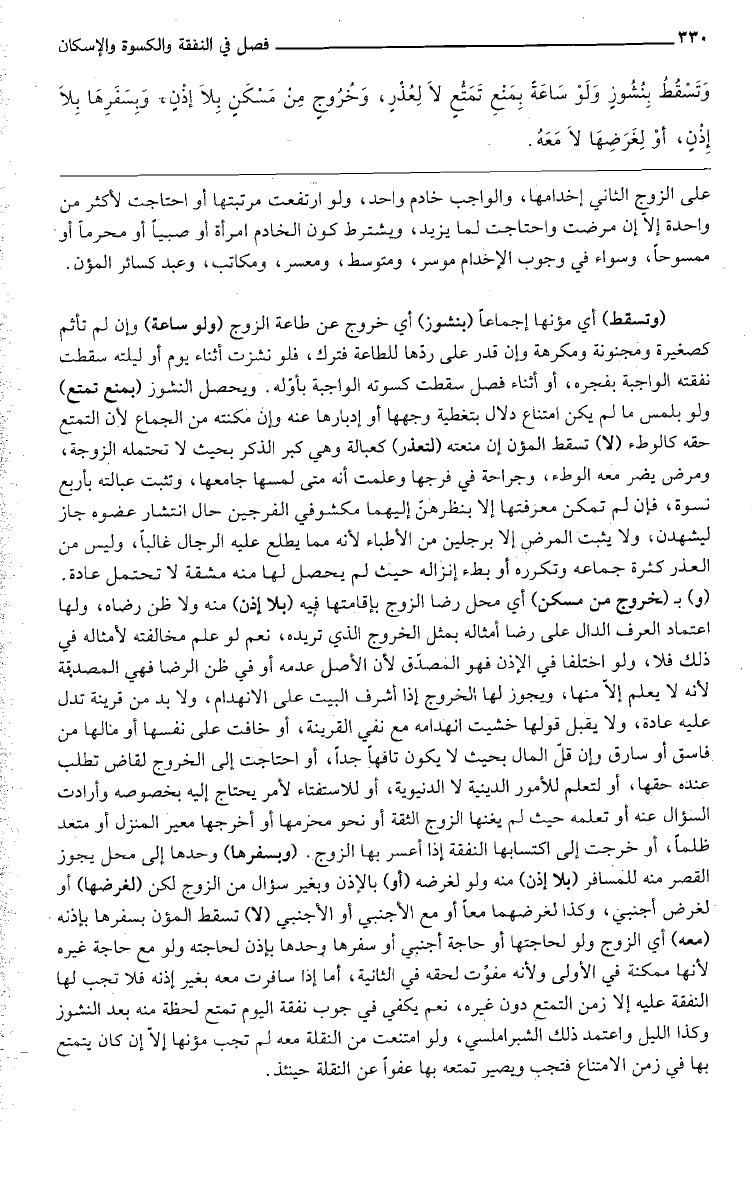 ٣٣٠ فصل في النفقة والكسوة والإسكان
وَتَسْقُطُ بِنُشُوزٍ وَلَوْ سَاعَةً بِمَنْعِ تَمَتُّعٍ لاَ لِعُذْرٍ، وَخُرُوجٍ مِنْ مَسْكَنٍ بِلاَ إِذْنٍ، وَبِسَفَرِهَا بِلاَ
إِذْنٍ، أَوْ لِغَرَضِهَا لاَ مَعَهُ.
على الزوج الثاني إخدامها، والواجب خادم واحد، ولو ارتفعت مرتبتها أو احتاجت لأكثر من
واحدة إلاّ إن مرضت واحتاجت لما يزيد، ويشترط كون الخادم امرأة أو صبياً أو محرماً أو
ممسوحاً، وسواء في وجوب الإخدام موسر، ومتوسط، ومعسر، ومكاتب، وعبد كسائر المؤن.
(وتسقط) أي مؤنها إجماعاً (بنشوز) أي خروج عن طاعة الزوج (ولو ساعة) وإن لم تأثم
كصغيرة ومجنونة ومكرهة وإن قدر على ردّها للطاعة فترك، فلو نشزت أثناء يوم أو ليلته سقطت
نفقته الواجبة بفجره، أو أثناء فصل سقطت كسوته الواجبة بأوّله. ويحصل النشوز (بمنع تمتع)
ولو بلمس ما لم يكن امتناع دلال بتغطية وجهها أو إدبارها عنه وإن مكنته من الجماع لأن التمتع
حقه كالوطء (لا) تسقط المؤن إن منعته (لتعذر) كعبالة وهي كبر الذكر بحيث لا تحتمله الزوجة،
ومرض يضر معه الوطء، وجراحة في فرجها وعلمت أنه متى لمسها جامعها، وتثبت عبالته بأربع
نسوة، فإن لم تمكن معرفتها إلا بنظرهنّ إليهما مكشوفي الفرجين حال انتشار عضوه جاز
ليشهدن، ولا يثبت المرض إلا برجلين من الأطباء لأنه مما يطلع عليه الرجال غالباً، وليس من
العذر كثرة جماعه وتكرره أو بطء إنزاله حيث لم يحصل لها منه مشقة لا تحتمل عادة.
(و) بـ (خروج من مسكن) أي محل رضا الزوج بإقامتها فيه (بلا إذن) منه ولا ظن رضاه، ولها
اعتماد العرف الدال على رضا أمثاله بمثل الخروج الذي تريده، نعم لو علم مخالفته لأمثاله في
ذلك فلا، ولو اختلفا في الإذن فهو المصدّق لأن الأصل عدمه أو في ظن الرضا فهي المصدقة
لأنه لا يعلم إلاّ منها، ويجوز لها الخروج إذا أشرف البيت على الانهدام، ولا بد من قرينة تدل
عليه عادة، ولا يقبل قولها خشيت انهدامه مع نفي القرينة، أو خافت على نفسها أو مالها من
فاسق أو سارق وإن قلّ المال بحيث لا يكون تافهاً جداً، أو احتاجت إلى الخروج لقاض تطلب
عنده حقها، أو لتعلم للأمور الدينية لا الدنيوية، أو للاستفتاء لأمر يحتاج إليه بخصوصه وأرادت
السؤال عنه أو تعلمه حيث لم يغنها الزوج الثقة أو نحو محرمها أو أخرجها معير المنزل أو متعد
ظلماً، أو خرجت إلى اكتسابها النفقة إذا أعسر بها الزوج. (وبسفرها) وحدها إلى محل يجوز
القصر منه للمسافر (بلا إذن) منه ولو لغرضه (أو) بالإذن وبغير سؤال من الزوج لكن (لغرضها) أو
لغرض أجنبي، وكذا لغرضهما معاً أو مع الأجنبي أو الأجنبي (لا) تسقط المؤن بسفرها بإذنه
(معه) أي الزوج ولو لحاجتها أو حاجة أجنبي أو سفرها وحدها بإذن لحاجته ولو مع حاجة غيره
لأنها ممكنة في الأولى ولأنه مفوّت لحقه في الثانية، أما إذا سافرت معه بغير إذنه فلا تجب لها
النفقة عليه إلا زمن التمتع دون غيره، نعم يكفي في جوب نفقة اليوم تمتع لحظة منه بعد النشوز
وكذا الليل واعتمد ذلك الشبراملسي، ولو امتنعت من النقلة معه لم تجب مؤنها إلاّ إن كان يتمتع
بها في زمن الامتناع فتجب ويصير تمتعه بها عفواً عن النقلة حينئذ.